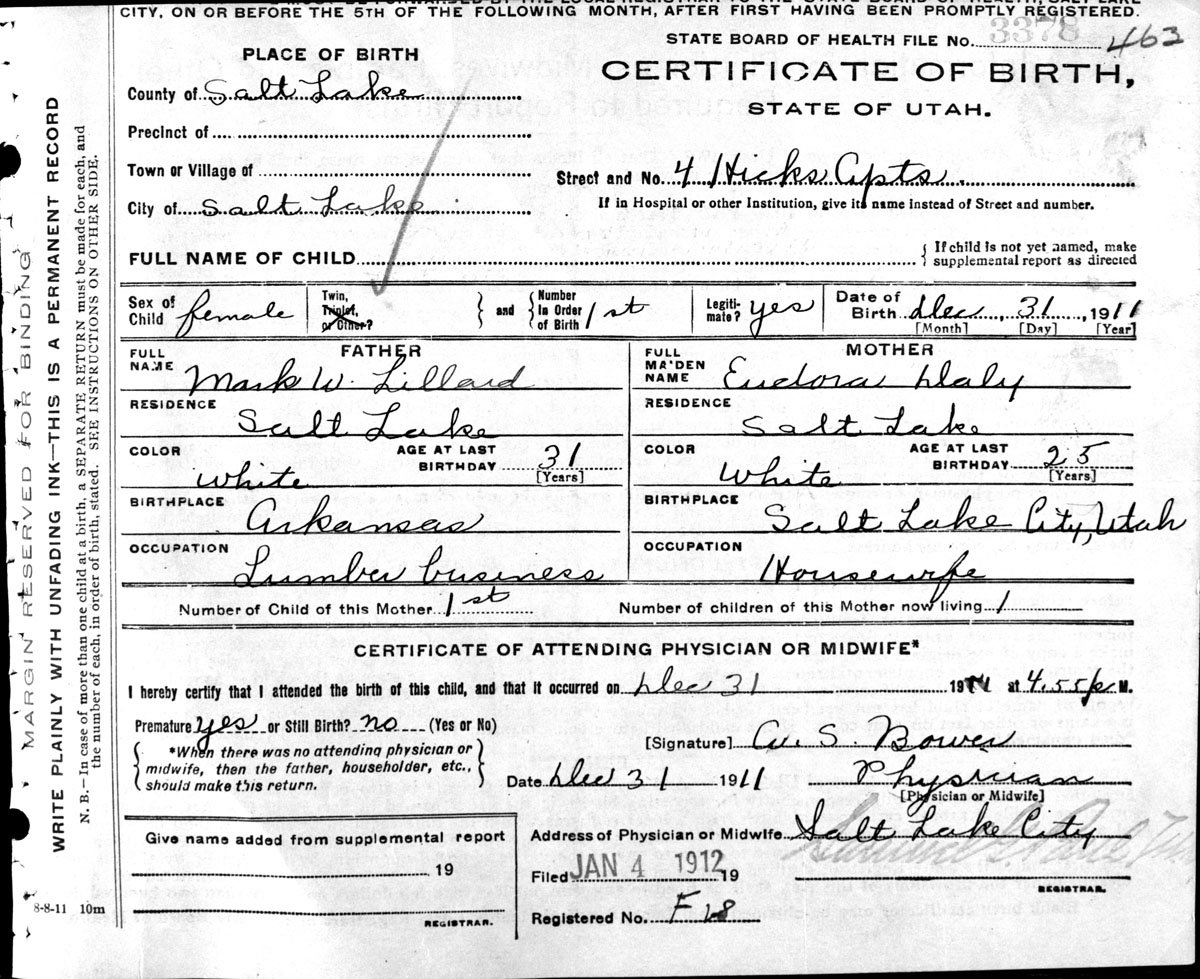 CITY, ON OR BEFORE THE 5TH OF THE FOLLOWING MONTH, AFTER FIRST HAVING BEEN PROMPTLY REGISTERED.
STATE BOARD OF HEALTH FILE No. 3378 463
PLACE OF BIRTH
CERTIFICATE OF BIRTH,
STATE OF UTAH.
County of Salt Lake
Precinct of
Town or Village of
Street and No. 4 Hicks Apts.
City of Salt Lake
If in Hospital or other Institution, give its name instead of Street and number.
FULL NAME OF CHILD
If child is not yet named, make
supplemental report as directed
Sex of Child female
Twin, Triplet, or Other?
and
Number In Order of Birth 1st
Legitimate? yes
Date of Birth Dec. 31, 1911
[Month] [Day] [Year]
FATHER
FULL NAME Mark W. Lillard
RESIDENCE
Salt Lake
COLOR White
AGE AT LAST BIRTHDAY 31
[Years]
BIRTHPLACE
Arkansas
OCCUPATION
Lumber business
MOTHER
FULL MAIDEN NAME Eudora Daly
RESIDENCE
Salt Lake
COLOR White
AGE AT LAST BIRTHDAY 25
[Years]
BIRTHPLACE
Salt Lake City, Utah
OCCUPATION
Housewife
Number of Child of this Mother 1st
Number of children of this Mother now living 1
CERTIFICATE OF ATTENDING PHYSICIAN OR MIDWIFE*
I hereby certify that I attended the birth of this child, and that it occurred on Dec 31 1911 at 4.55 p M.
Premature yes or Still Birth? no (Yes or No)
*When there was no attending physician or
midwife, then the father, householder, etc.,
should make this return.
[Signature] S. Bower
Date Dec 31 1911
Physician
[Physician or Midwife]
Give name added from supplemental report
19
REGISTRAR.
Address of Physician or Midwife Salt Lake City
Filed JAN 4 1912 19
REGISTRAR.
Registered No. F18
8-8-11 10m
WRITE PLAINLY WITH UNFADING INK—THIS IS A PERMANENT RECORD
MARGIN RESERVED FOR BINDING
N. B.—In case of more than one child at a birth, a SEPARATE RETURN must be made for each, and
the number of each, in order of birth, stated. SEE INSTRUCTIONS ON OTHER SIDE.